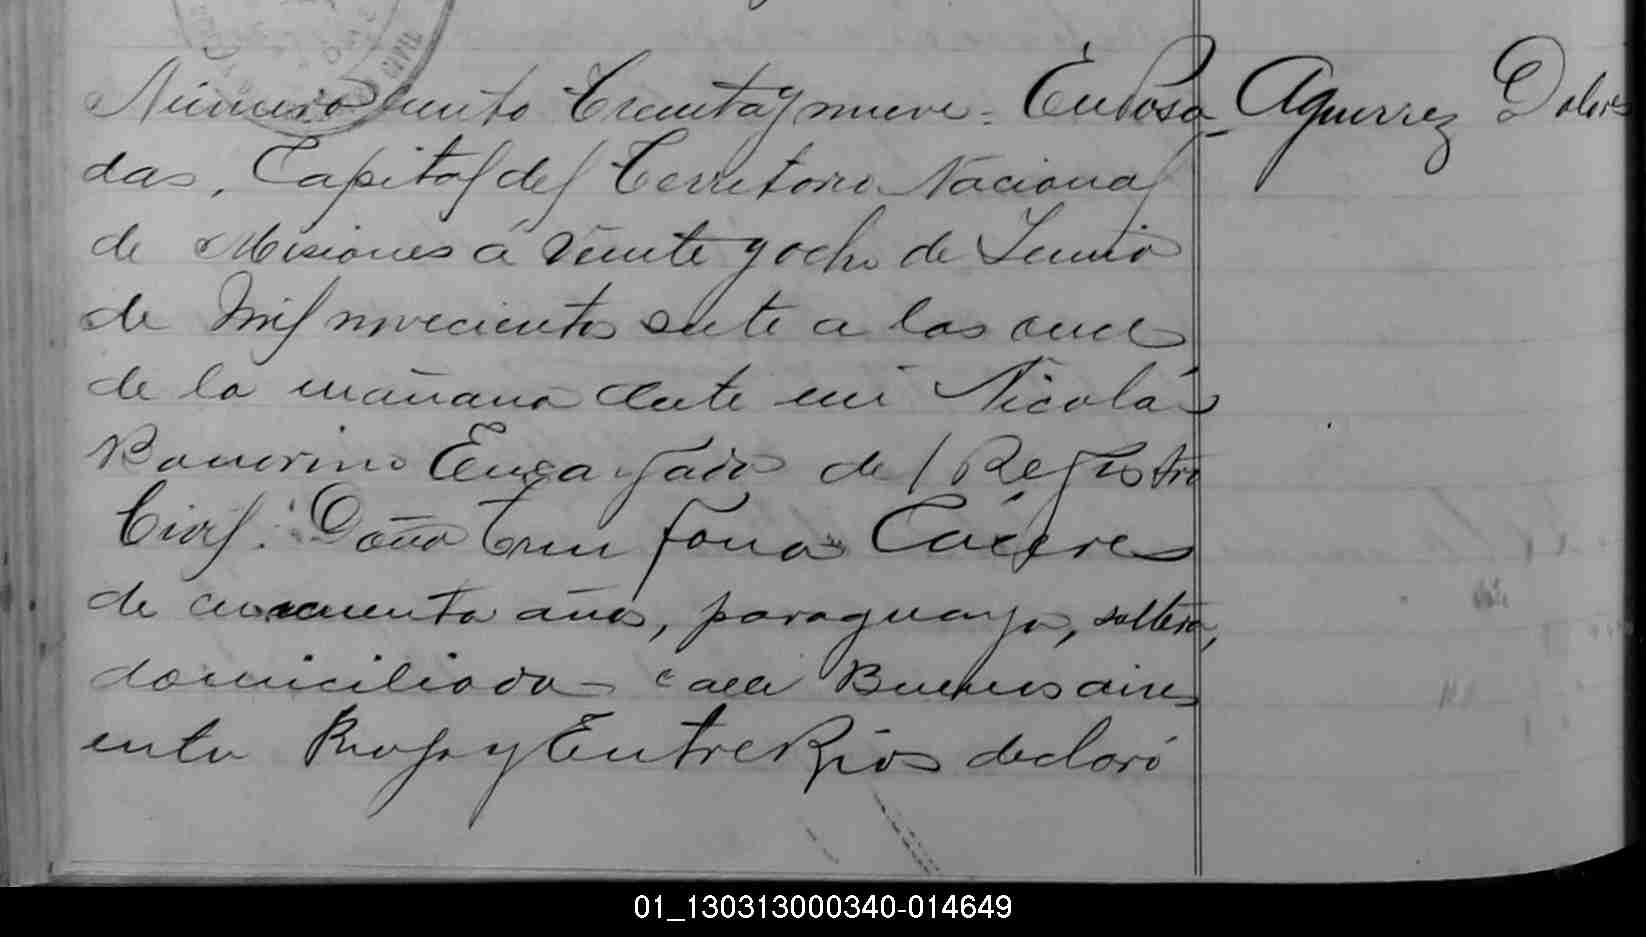 Número ciento treinta y nueve = En Posa- Aguirrez Dolores
das, Capital del Territorio Nacional
de Misiones á veinte y ocho de Junio
de mil novecientos siete a las once
de la mañana ante mi Nicolás
Encargado del Registro
Civil: Doña Trinfona Cáceres
de cincuenta años, paraguaya, soltera,
domiciliada calle Buenos aires
entre Rioja y Entre Rios declaró
01_130313000340-014649